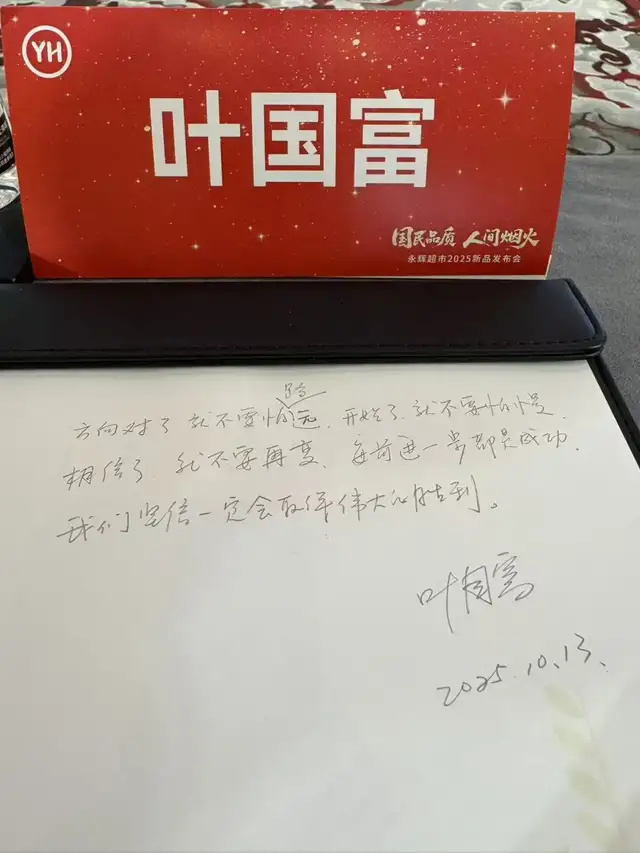 YH
叶国富
国民品质 人间烟火
永辉超市2025新品发布会
路
方向对了 就不要怕远、开始了、就不要怕慢、
相信了 就不要再变、每前进一步都是成功.
我们坚信一定会取得伟大的胜利。
叶国富
2025.10.13.